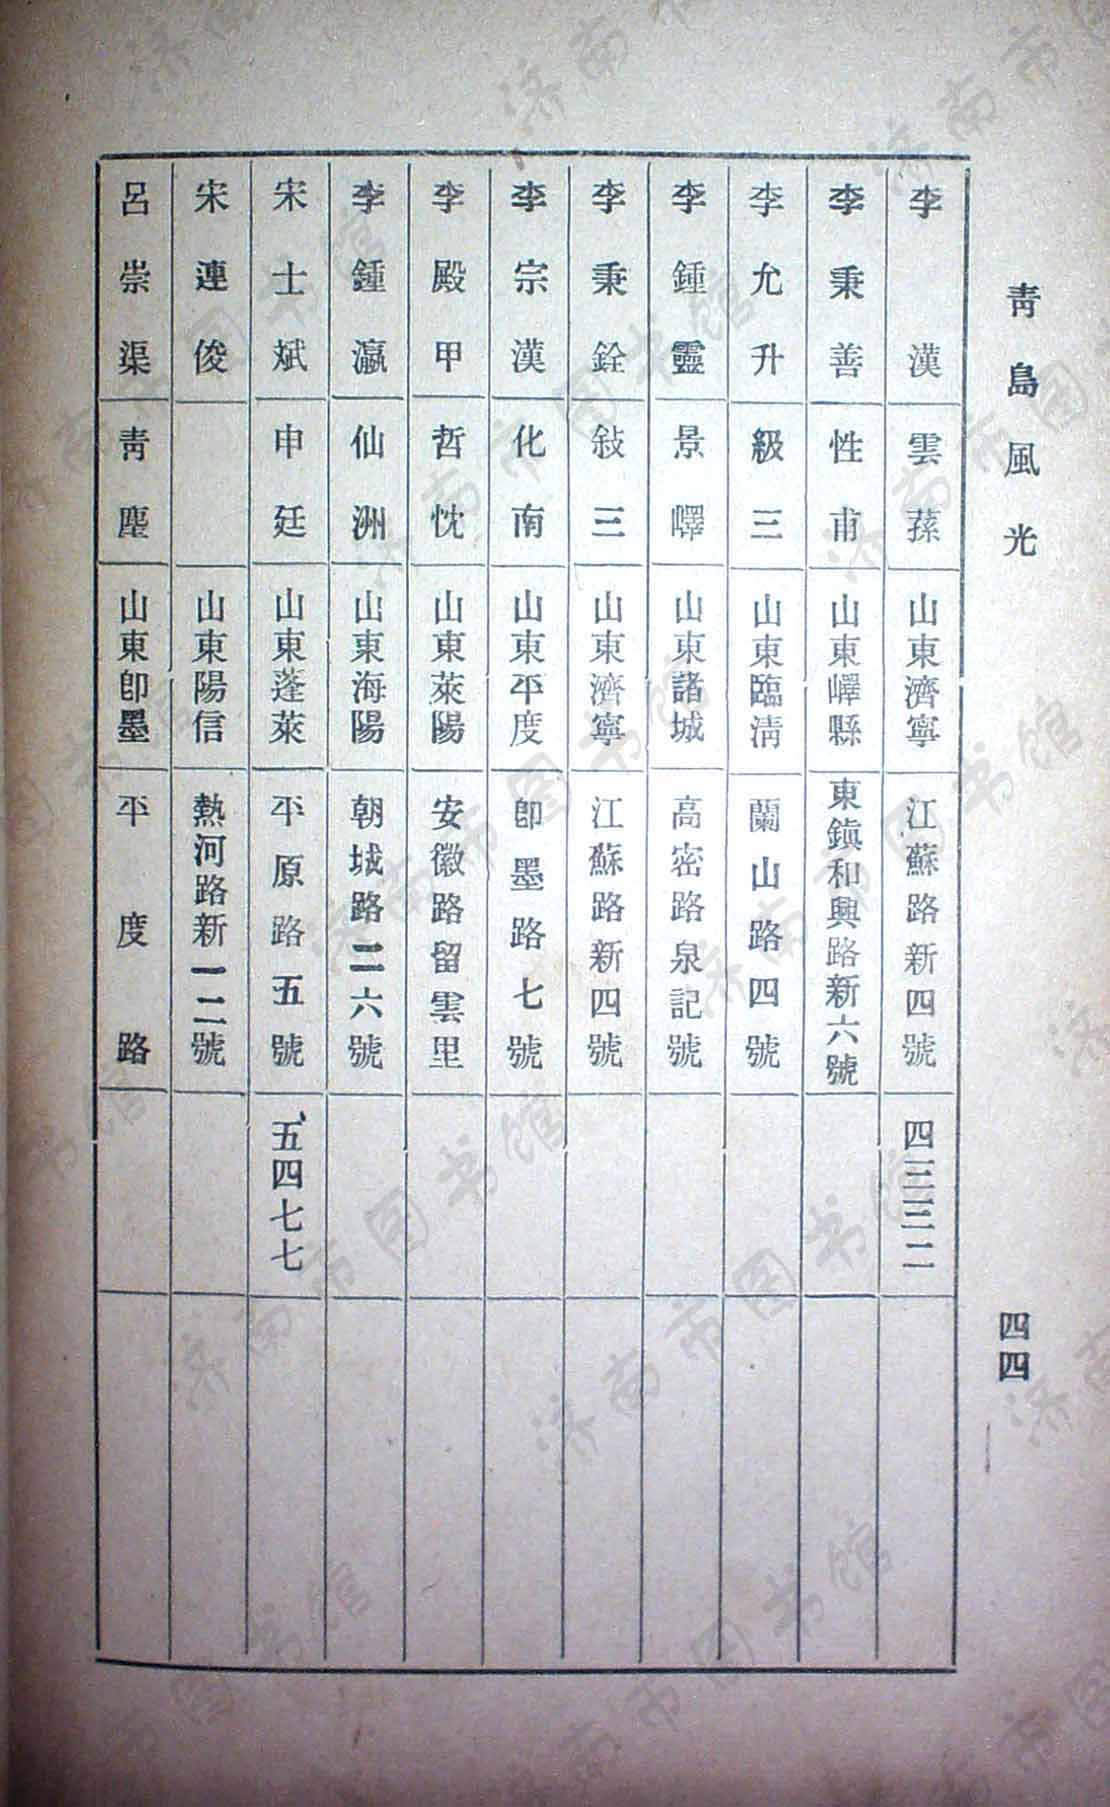 青島風光
四四
李漢 雲蓀 山東濟寧 江蘇路新四號 四三三二
李秉善 性甫 山東嶧縣 東鎭和興路新六號
李允升 級三 山東臨清 蘭山路四號
李鍾靈 景嶧 山東諸城 高密路泉記號
李秉銓 敍三 山東濟寧 江蘇路新四號
李宗漢 化南 山東平度 卽墨路七號
李殿甲 哲忱 山東萊陽 安徽路留雲里
李鍾瀛 仙洲 山東海陽 朝城路二六號
宋士斌 申廷 山東蓬萊 平原路五號 五四七七
宋連俊 山東陽信 熱河路新一二號
呂崇渠 靑塵 山東卽墨 平度路
济南市图书馆